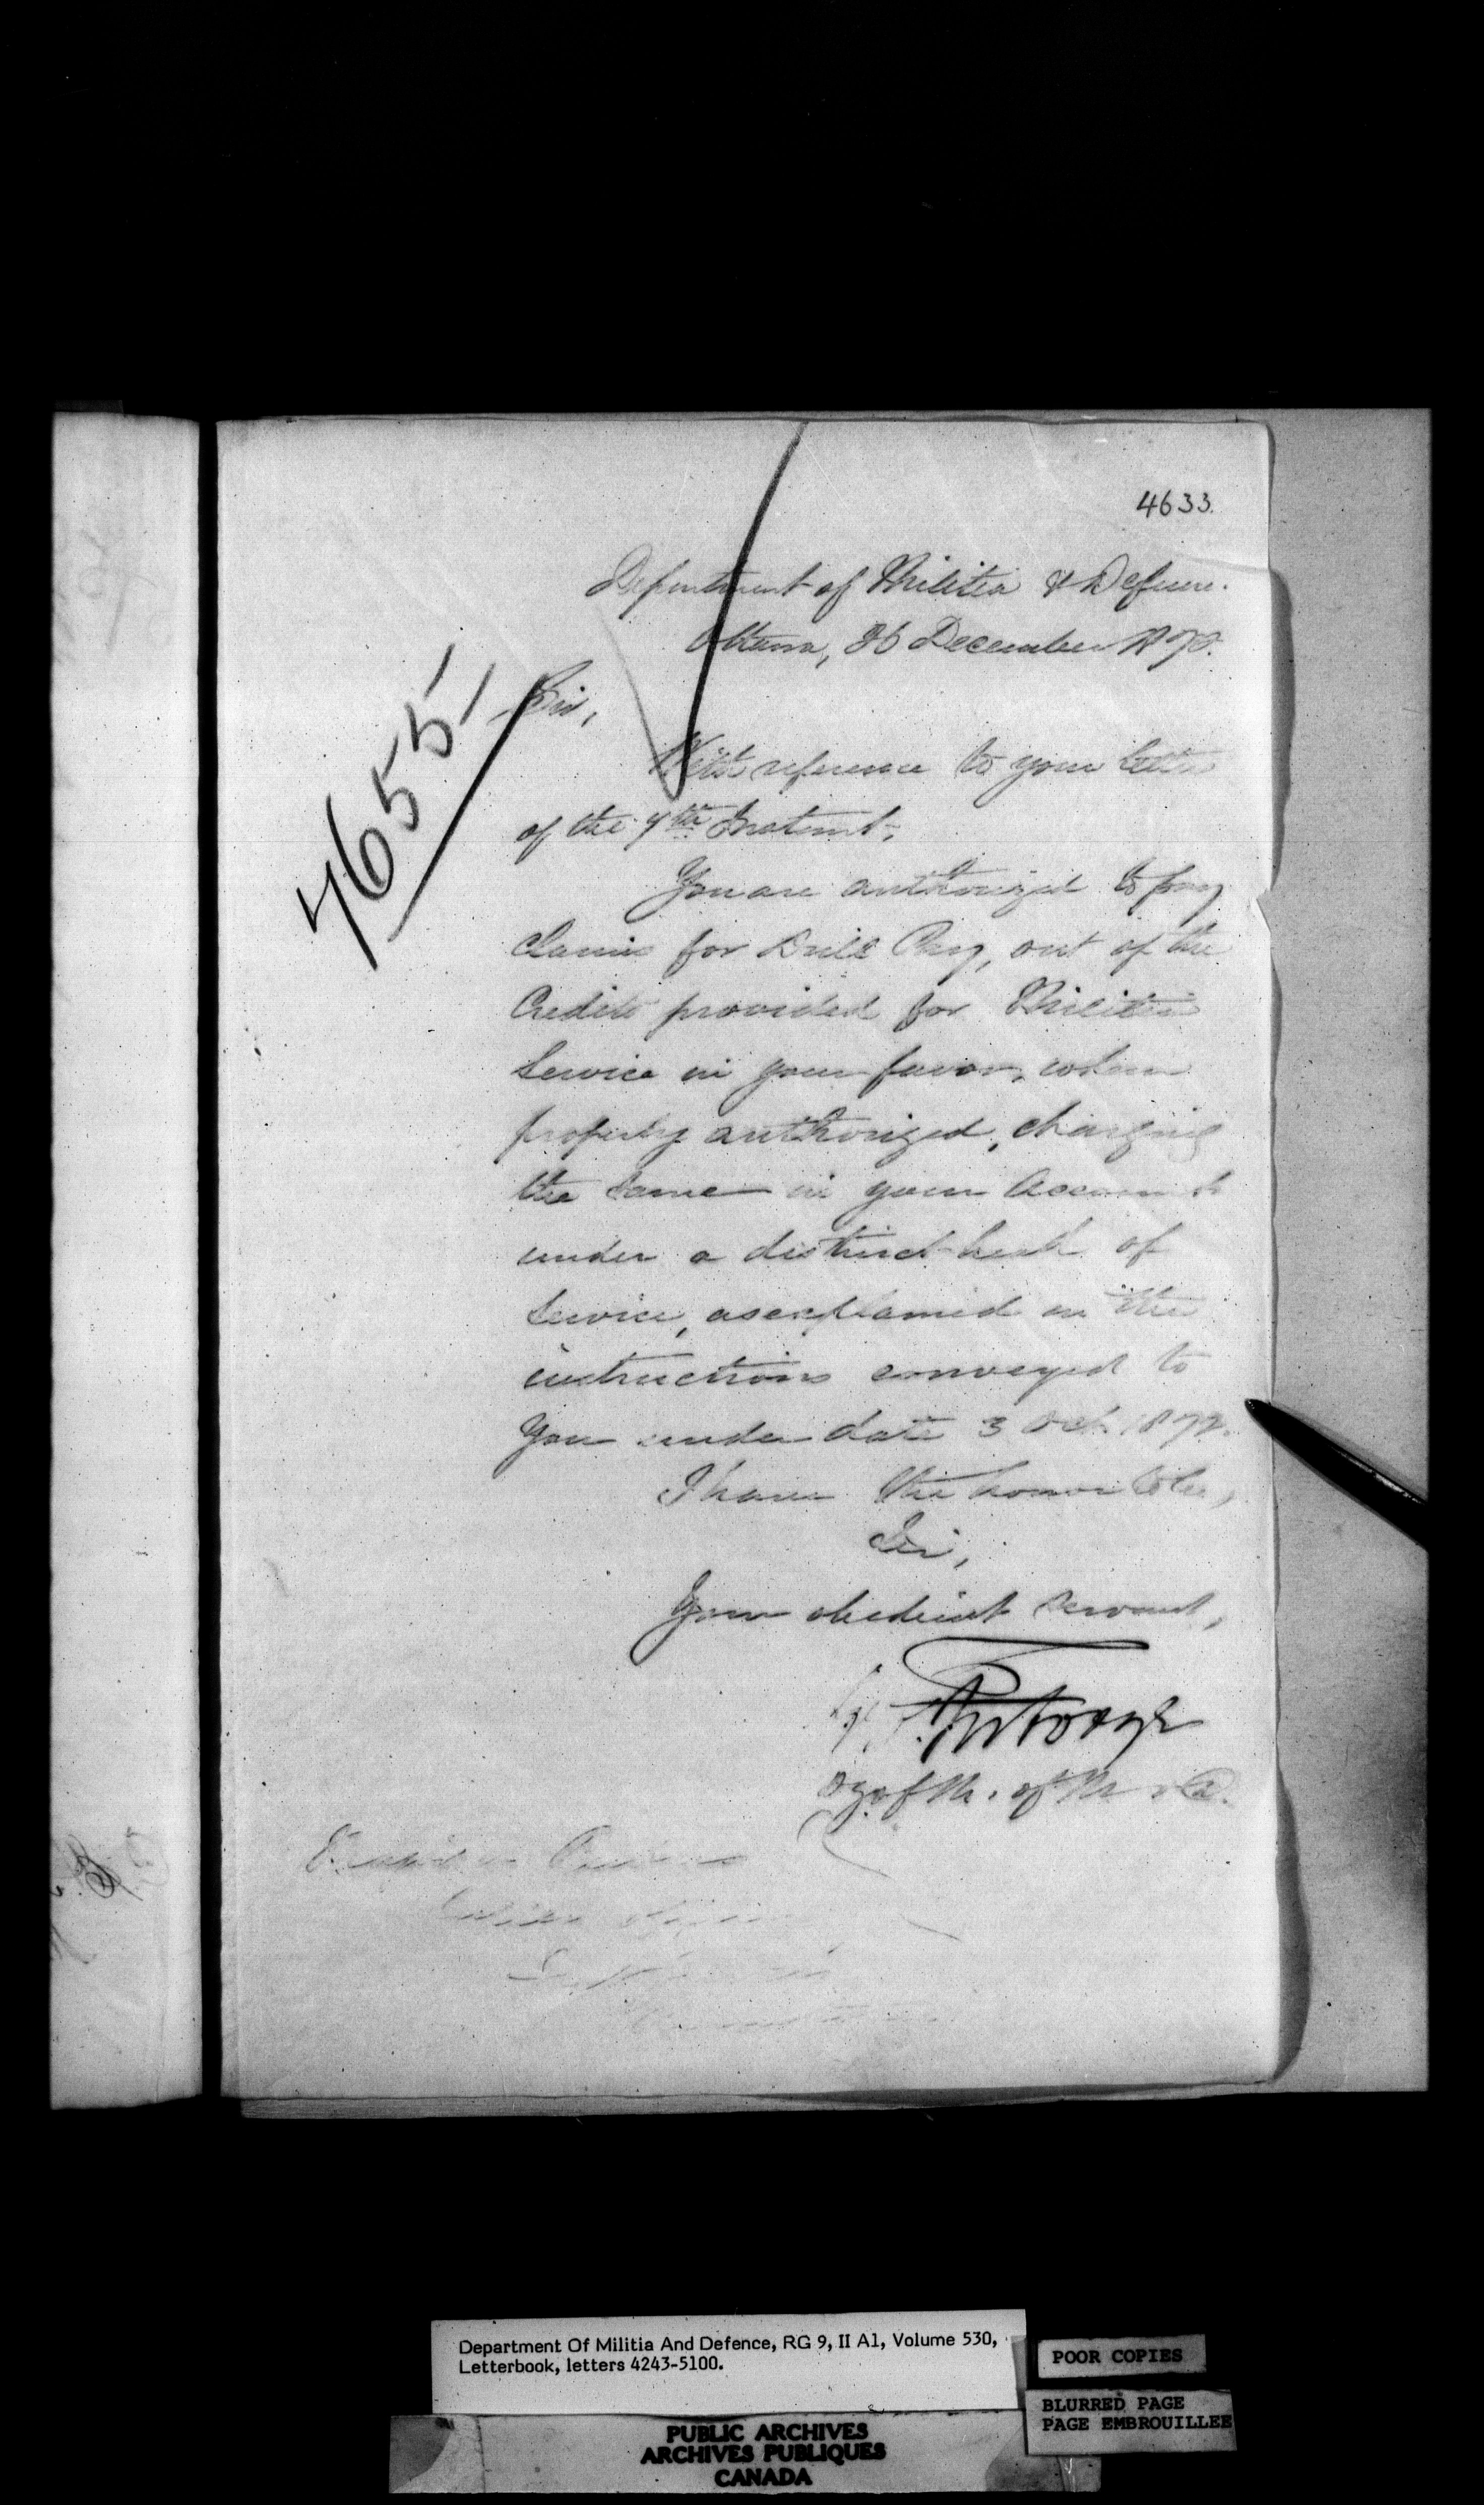 4633.
Department of Militia & Defence.
Ottawa, 26 December 187
4655
Sir,
With reference to your letter
of the 7th Instant,
You are authorized to pay
claims for Drill Pay, out of the
Credits provided for Militia
Service in your favor, when
properly authorized, charging
the same in your Accounts
under a distinct head of
Service, as explained in the
instructions conveyed to
You under date 3 Oct. 1872.
I have the honor to be,
Sir,
Your obedient Servant,
of M. of M & D.
Department Of Militia And Defence, RG 9, II A1, Volume 530,
Letterbook, letters 4243-5100.
POOR COPIES
BLURRED PAGE
PAGE EMBROUILLEE
PUBLIC ARCHIVES
ARCHIVES PUBLIQUES
CANADA